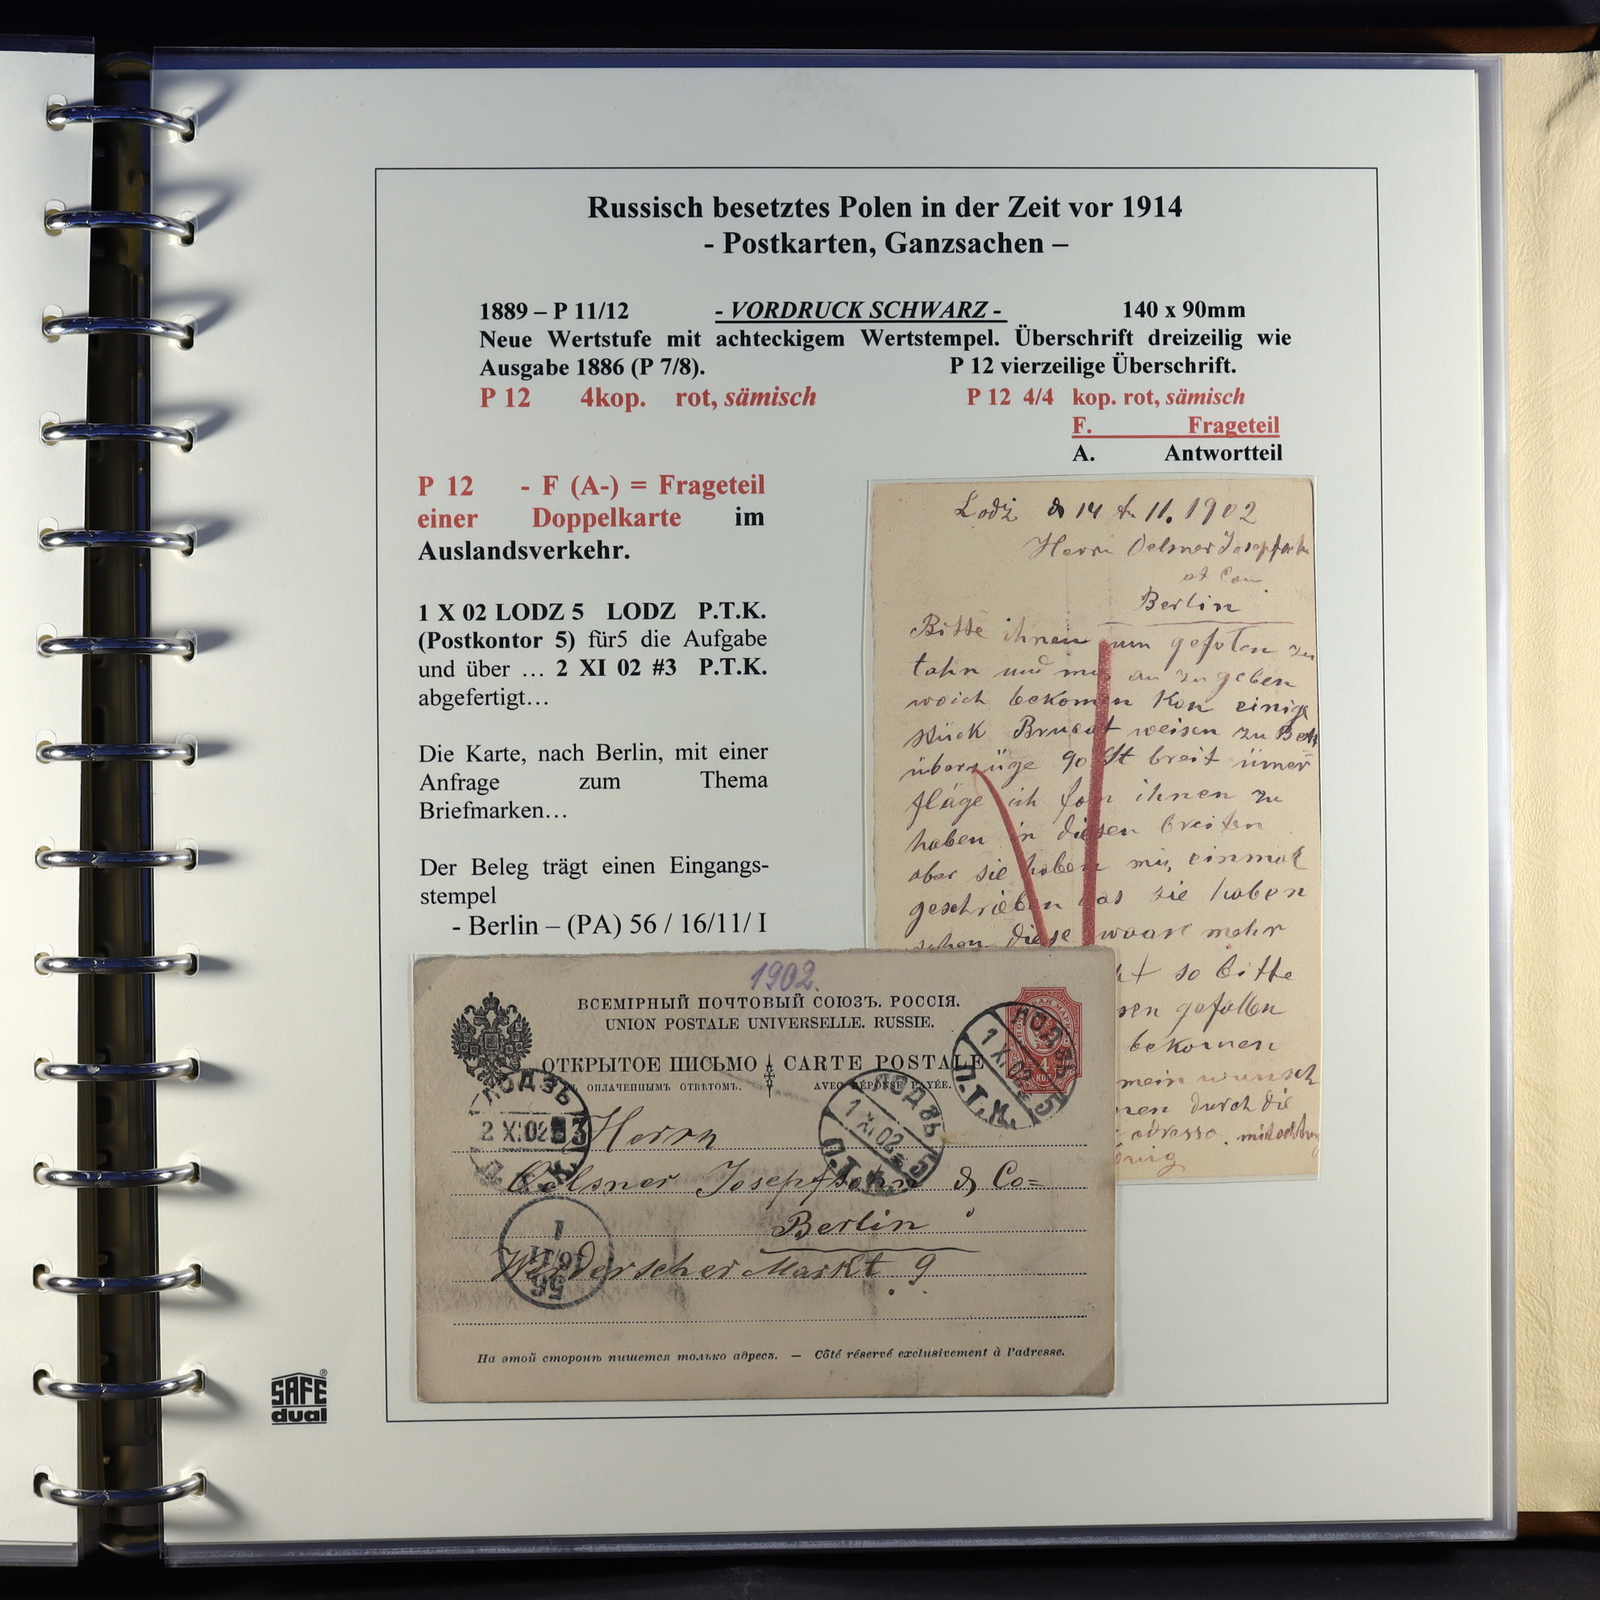 Russisch besetztes Polen in der Zeit vor 1914
- Postkarten, Ganzsachen –
1889 – P 11/12 - VORDRUCK SCHWARZ - 140 x 90mm
Neue Wertstufe mit achteckigem Wertstempel. Überschrift dreizeilig wie
Ausgabe 1886 (P 7/8). P 12 vierzeilige Überschrift.
P 12 4kop. rot, sämisch P 12 4/4 kop. rot, sämisch
F. Frageteil
A. Antwortteil
P 12 - F (A-) = Frageteil
einer Doppelkarte im
Auslandsverkehr.
1 X 02 LODZ 5 LODZ P.T.K.
(Postkontor 5) für5 die Aufgabe
und über … 2 XI 02 #3 P.T.K.
abgefertigt…
Die Karte, nach Berlin, mit einer
Anfrage zum Thema
Briefmarken…
Der Beleg trägt einen Eingangs-
stempel
- Berlin – (PA) 56 / 16/11/ I
Lodz 14 11. 1902
Herrn Oelsner Josepfsohn
et Co
Berlin
Bitte ihnen gefolen zu
tahn und mir an zu geben
woich bekomen Kon einige
stück weisen zu Bett
überzüge 90 breit immer
fläge ich ihnen zu
haben in diesen breiten
aber sie haben mir einmal
geschrieben das sie haben
schon diese waare mehr
so bitte
gefallen
bekomen
mein wunsch
durch die
adresse
1902.
ВСЕМІРНЫЙ ПОЧТОВЫЙ СОЮЗЪ. РОССІЯ.
UNION POSTALE UNIVERSELLE. RUSSIE.
ОТКРЫТОЕ ПИСЬМО CARTE POSTALE
СЪ ОПЛАЧЕННЫМЪ ОТВѢТОМЪ. AVEC RÉPONSE PAYÉE.
ЛОДЗЬ
1 XI 02
5
П.Т.К.
ЛОДЗЬ
1 XI 02
5
П.Т.К.
ЛОДЗЬ
2 XI 02 3
Herrn
Oelsner Josepfsohn & Co=
Berlin
Werderscher Markt 9
56
16/11
I
На этой сторонѣ пишется только адресъ. — Côté réservé exclusivement à l'adresse.
SAFE®
dual